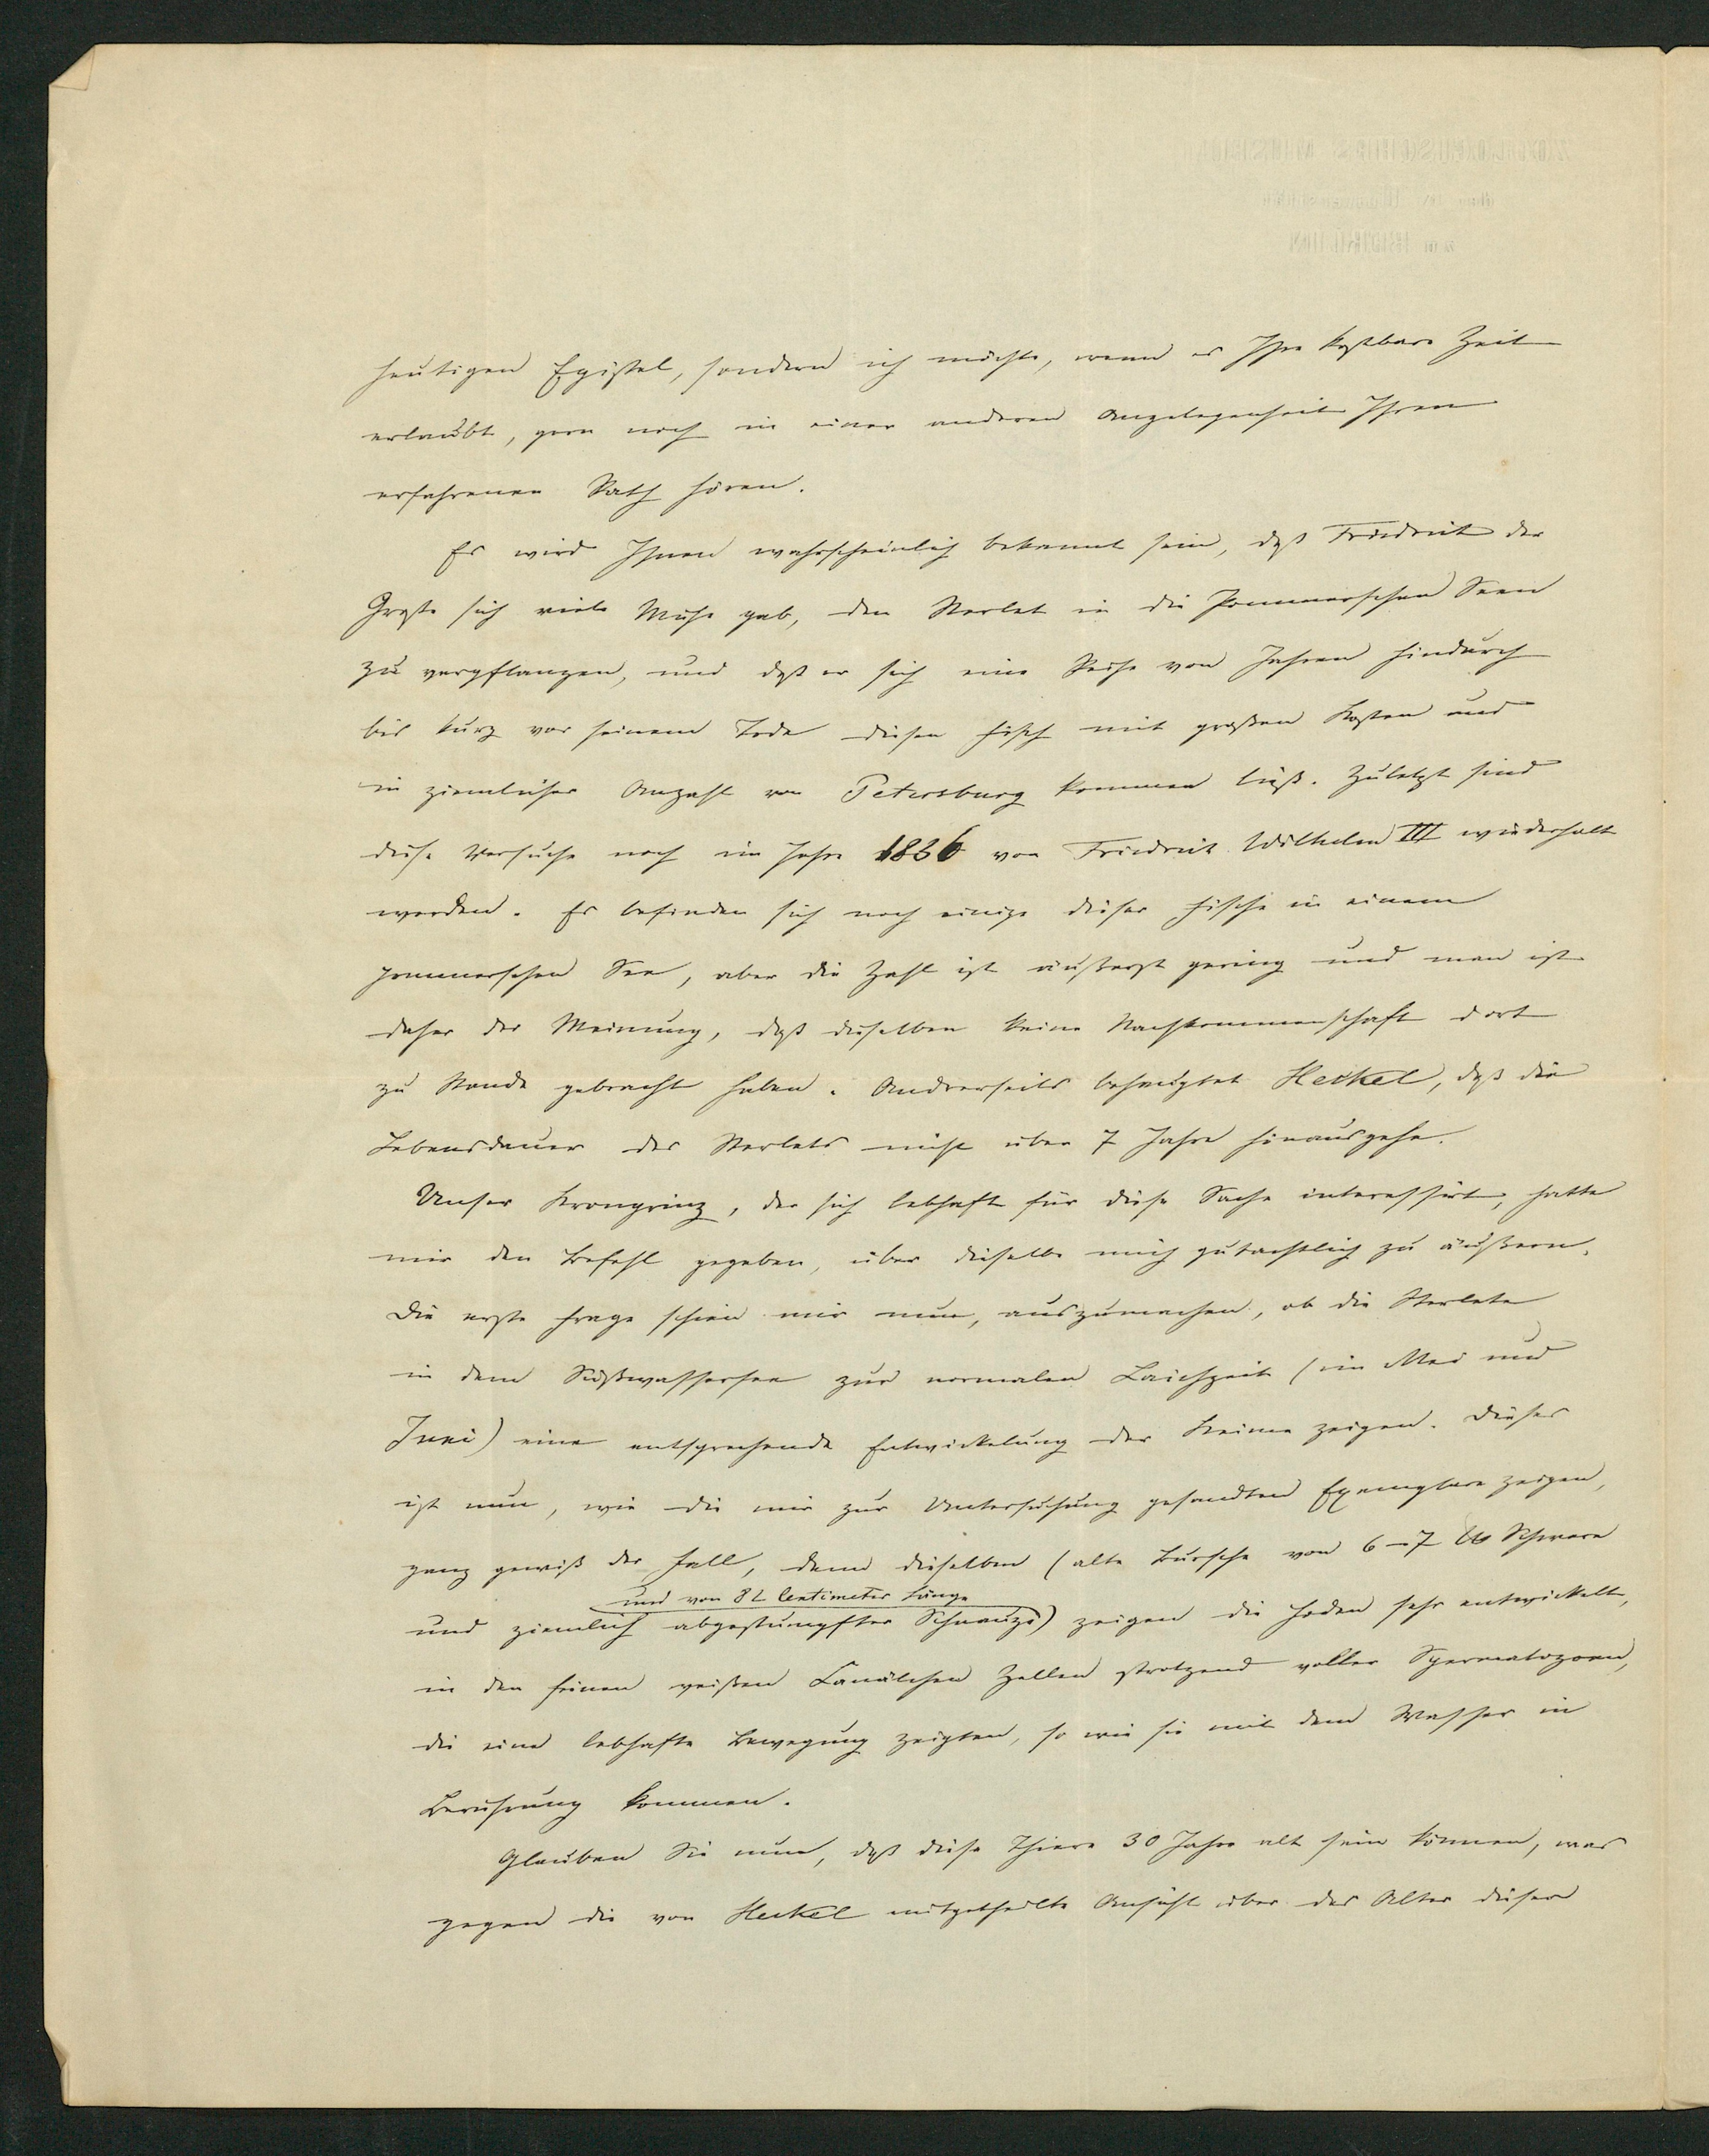 heutigen Epistel, sondern ich möchte, wenn es Ihre kostbare Zeit
erlaubt, gern noch in einer anderen Angelegenheit Ihren
erfahrenen Rath hören.
Es wird Ihnen wahrscheinlich bekannt sein, daß Friedrich der
Große sich viele Mühe gab, den Sterlet in die Pommerschen Seen
zu verpflanzen, und daß er sich eine Reihe von Jahren hindurch
bis kurz vor seinem Tode diesen Fisch mit großen Kosten und
in ziemlicher Anzahl von Petersburg kommen ließ. Zuletzt sind
diese Versuche noch im Jahre 1836 von Friedrich Wilhelm III wiederholt
worden. Es befinden sich noch einige dieser Fische in einem
pommerschen See, aber die Zahl ist äußerst gering und man ist
daher der Meinung, daß dieselben keine Nachkommenschaft dort
zu Stande gebracht haben. Andrerseits behauptet Heckel, daß die
Lebensdauer des Sterlets nicht über 7 Jahre hinausgehe.
Unser Kronprinz, der sich lebhaft für diese Sache interessirt, hatte
mir den Befehl gegeben, über dieselbe mich gutachtlich zu äußern.
Die erste Frage schien mir nun, auszumachen, ob die Sterlete
in dem Süßwassersee zur normalen Laichzeit (im Mai und
Juni) eine entsprechende Entwickelung der Keime zeigen. Dieses
ist nun, wie die mir zur Untersuchung gesandten Exemplare zeigen,
ganz gewiß der Fall, denn dieselben (alte Bursche von 6-7 ℔ Schwere
und von 82 Centimeter Länge
und ziemlich abgestumpfter Schnauze) zeigen die Hoden sehr entwickelt,
in den feinen weißen Canälchen Zellen strotzend voller Spermatozoen,
die eine lebhafte Bewegung zeigten, so wie sie mit dem Wasser in
Berührung kommen.
Glauben Sie nun, daß diese Thiere 30 Jahre alt sein können, was
gegen die von Heckel mitgetheilte Ansicht über das Alter dieser